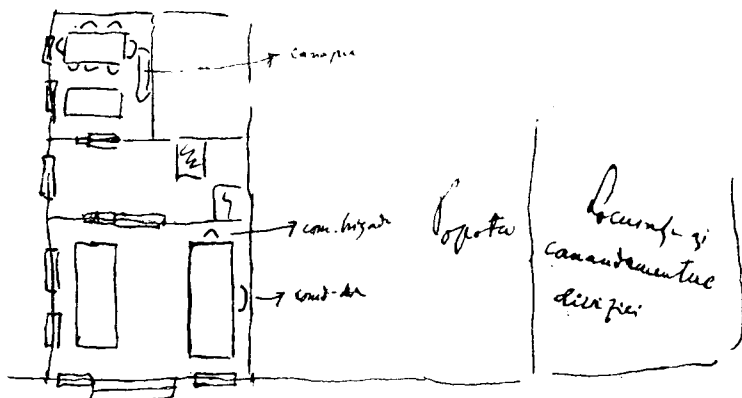 canapea
com. brigadă
comd-dor
Popota
Locuința și
comandamentul
diviziei